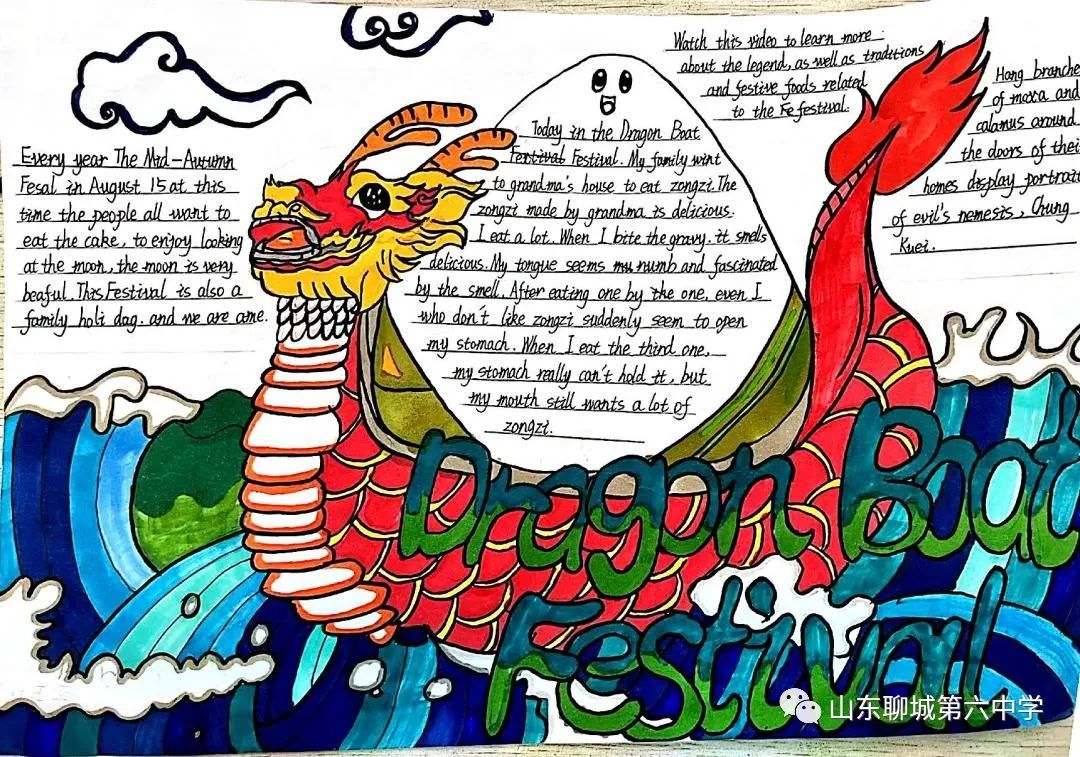 Every year The Mid-Autumn
Fesal in August 15 at this
time the people all want to
eat the cake, to enjoy looking
at the moon, the moon is very
beaful This Festival is also a
family holi dag. and we are ame.
Today in the Dragon Boat
Festival. My family wint
to grandma's house to eat zongzi. The
zongzi made by grandma is delicious.
I eat a lot. When I bite the gravy. it smells
delicious. My tongue seems numb and fascinated
by the smell. After eating one by the one, even I
who don't like zongzi suddenly seem to open
my stomach. When I eat the third one,
my stomach really can't hold it, but
my mouth still wants a lot of
zongzi.
Watch this video to learn more
about the legend, as well as traditions
and festive foods related
to the Fe festival.
Hang branche
of moxa and
calamus around
the doors of thei
homes display portrait
of evil's nemesis, Chung
Kuei.
Dragon Boat
Festival
山东聊城第六中学